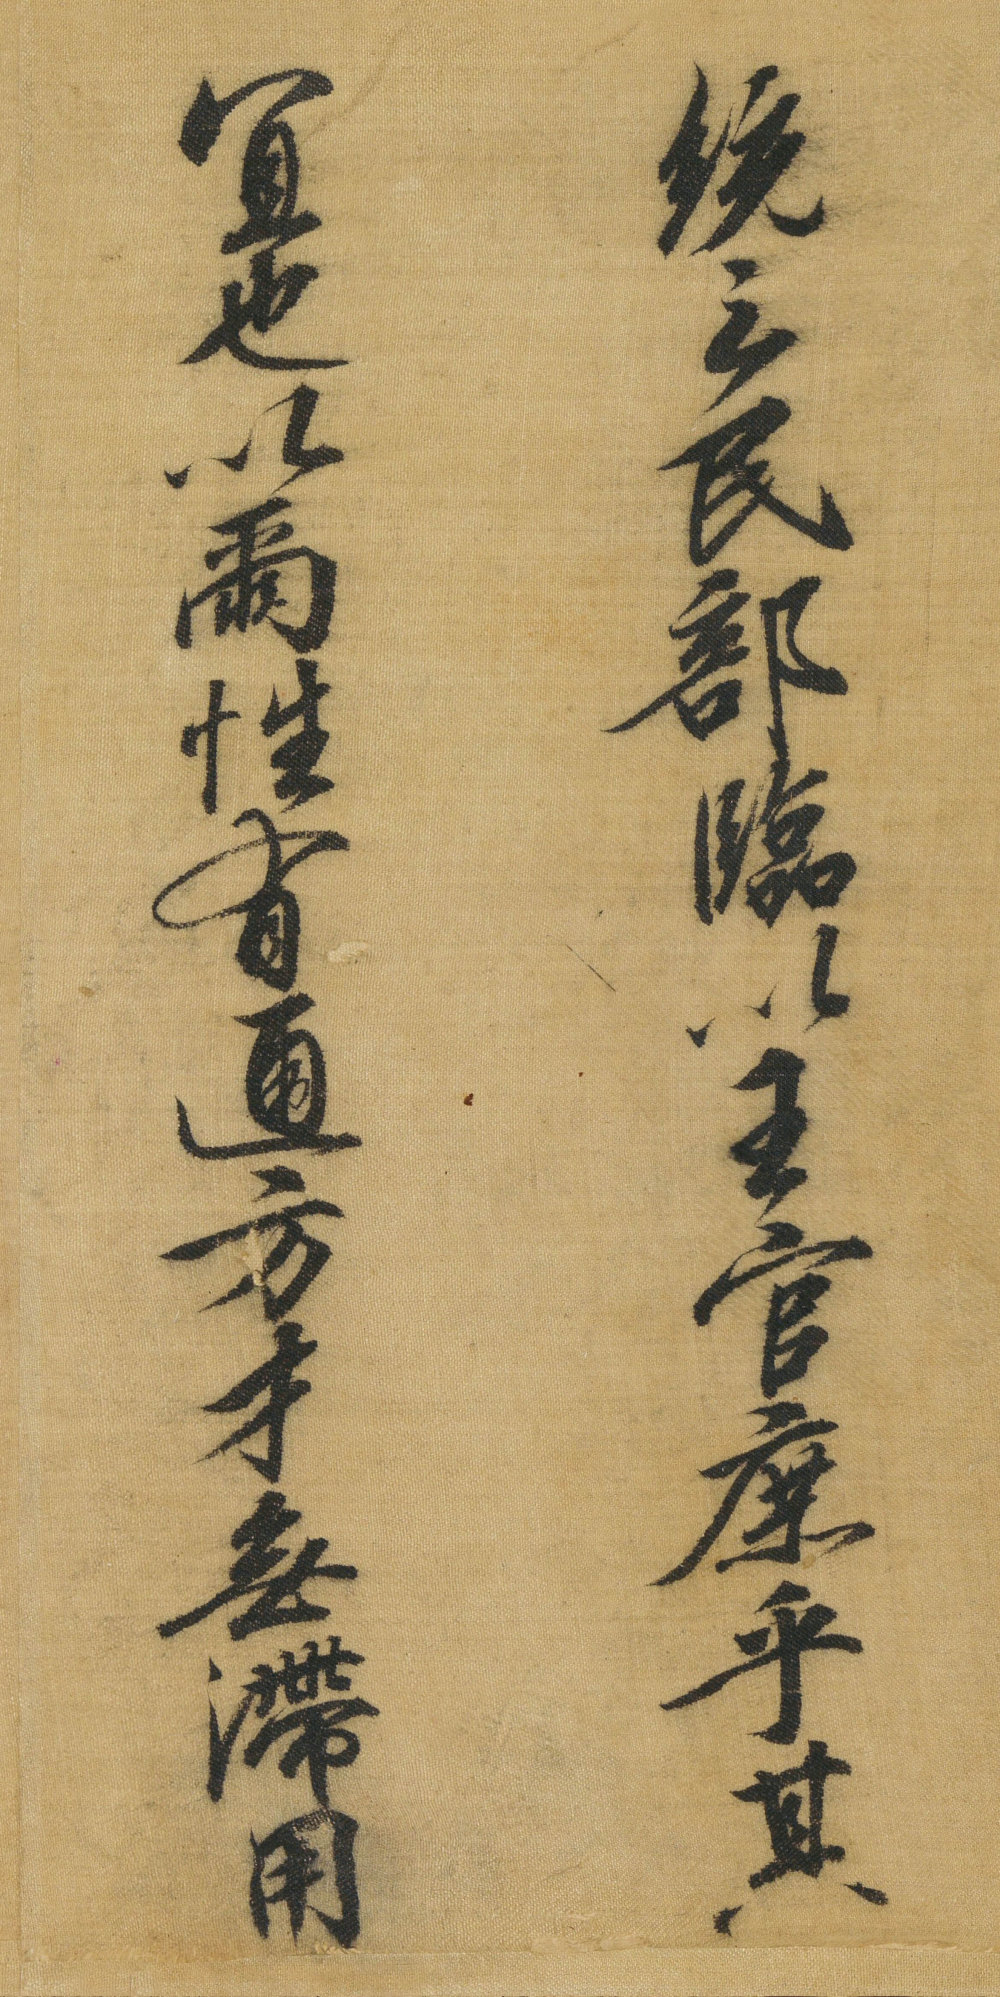 統之民部臨以王官庶乎其
宜也以爾性有通方才無滯用